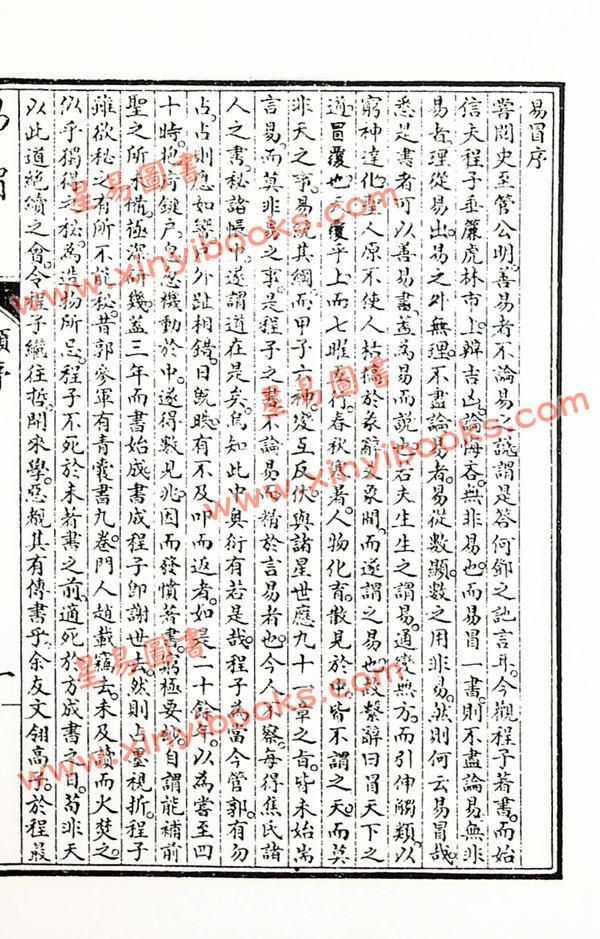 易冒序
嘗聞史至管公明善易者不論易之談謂是答何鄧之訑言耳今觀程子著書而始
信夫程子垂簾虎林市上辯吉凶論悔吝無非易也而易冒一書則不盡論易無非
易者理從易出易之外無理不盡論易者易從數顯數之用非易然則何云易冒哉
悉是書者可以善易盡為易而說也若夫生生之謂易通變無方而引伸觸類以
窮神達化聖人原不使人枯槁於彖辭爻象間而遂謂之易也故繫辭曰冒天下之
道冒覆也天覆乎上而七曜行春秋著人物化育散見於中皆不謂之天而莫
非天之事易統其綱而甲子六神變互反伏與諸星世應九十一章之旨皆未始耑
言易而莫非易之事是程子之書不論易而精於言易者也今人不察每得焦氏諸
人之書秘諸帳中遂謂道在是矣烏知此中奧衍有若是哉程子為當今管郭有勿
占占則應如響戶外趾相錯日旣昳有不及叩而返者如是二十餘年以為嘗至四
十時抱疴鍵戶息慮機動於中遂得數見兆因而發憤著書窮極要眇自謂能補前
聖之所未備極深研幾蓋三年而書始成書成程子卽謝世去然則占墨視折程子
雖欲秘之有所不能秘昔郭參軍有青囊書九卷門人趙載竊去未及讀而火焚之
似乎獨得之秘為造物所忌程子不死於未著書之前適死於方成書之日茍非天
以此道絶續之會令程子繼往哲開來學惡覩其有傳書乎余友文翎高子於程最
一
www.xinyibooks.com
星易圖書
www.xinyibooks.com
星易圖書
www.xinyibooks.com
星易圖書